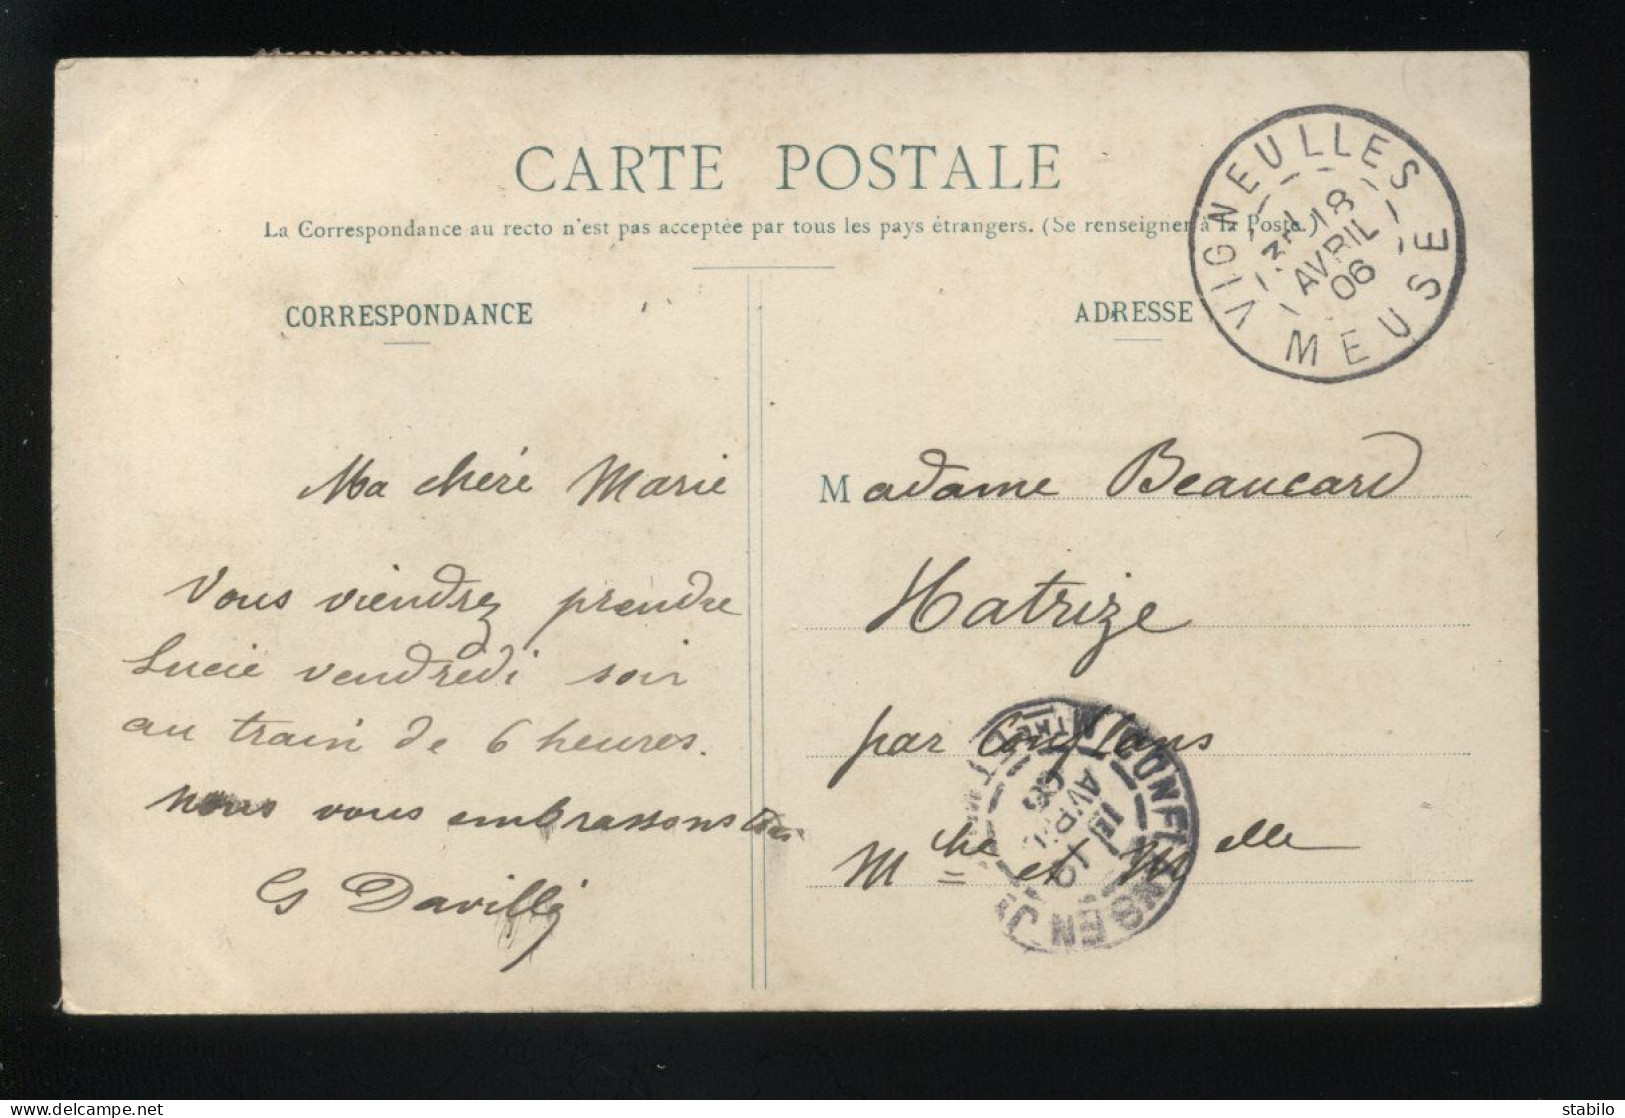 CARTE POSTALE
La Correspondance au recto n'est pas acceptée par tous les pays étrangers. (Se renseigner à la Poste.)
CORRESPONDANCE
Ma chère Marie
Vous viendrez prendre
Lucie vendredi soir
au train de 6 heures.
Nous vous embrassons
G Davilly
ADRESSE
Madame Beaucard
Hatrize
par Conflans
Mthe et Melle
VIGNEULLES
18
AVRIL
06
MEUSE
CONFLANS EN J
19
AVRIL
06
delcampe.net
stabilo